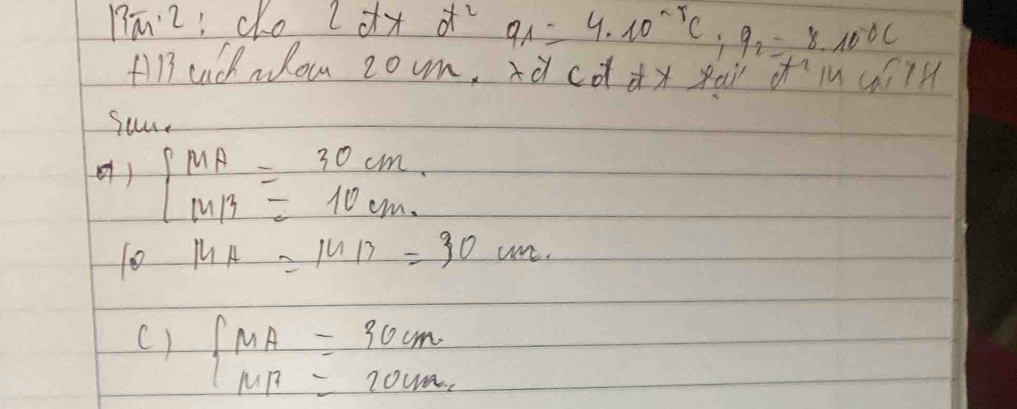 Bài 2: cho 2 đtx đ² q₁ = 4.10⁻⁸C; q₂ = 8.10⁻⁸C
AB cách nhau 20 cm. xđ cđ đtx tại đ² M với TH
sau.
a) { MA = 30 cm.
MB = 10 cm.
b MA = MB = 30 cm.
c) { MA = 30cm
MB = 20cm.